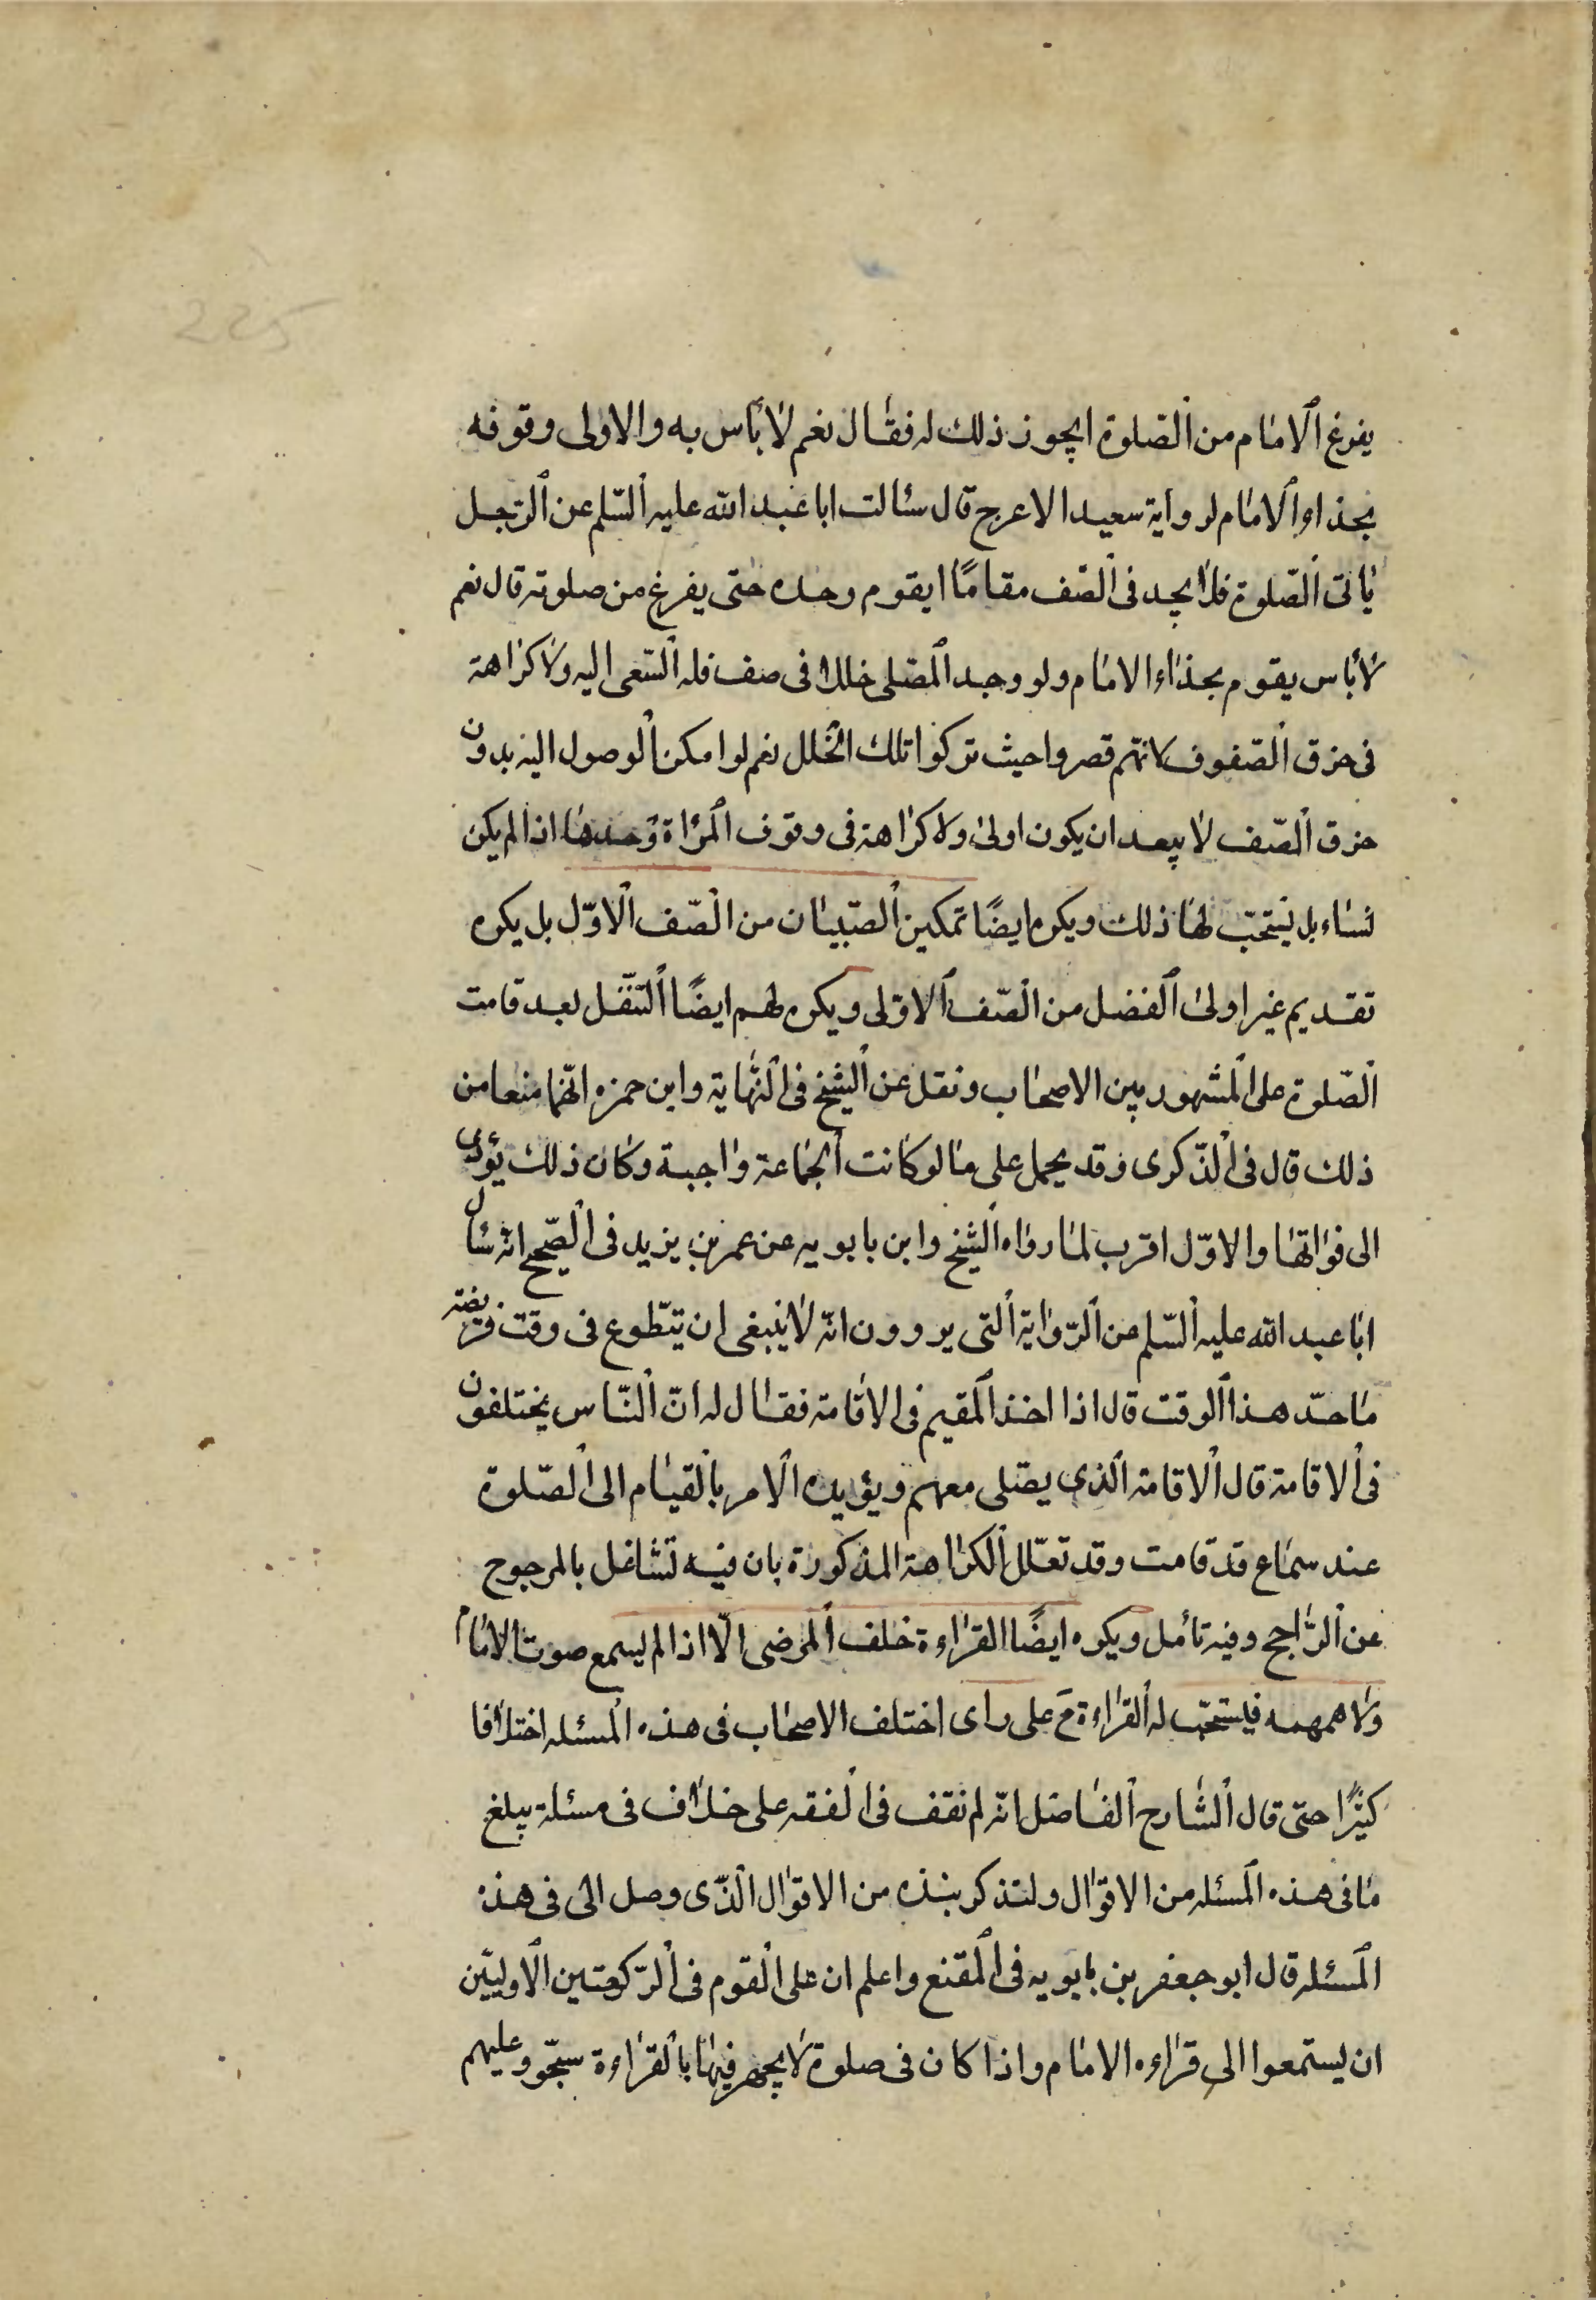 225
يفرغ الامام من الصلوة ايجوز ذلك له فقال نعم لا بأس به والاولى وقوفه
بحذاء الامام لرواية سعيد الاعرج قال سئالت ابا عبد الله عليه السّلم عن الرّجل
يأتى الصّلوة فلا يجد فى الصّف مقامًا ايقوم وحده حتى يفرغ من صلوته قال نعم
لا بأس يقوم بحذاء الامام ولو وجد المصّلى خللا فى صف فله السّعى اليه ولا كراهة
فى خرق الصّفوف لانّهم قصروا حيث تركوا تلك الخلل نعم لو امكن الوصول اليه بدون
خرق الصّف لا يبعد ان يكون اولى ولا كراهة فى وقوف المرأة وحدها اذا لم يكن
نساء بل يستحبّ لها ذلك ويكره ايضًا تمكين الصّبيان من الصّف الاوّل بل يكره
تقديم غير اولى الفضل من الصّف الاوّلى ويكره لهم ايضًا التنّفل بعد قامت
الصّلوة على المشهور بين الاصحاب ونقل عن الشيخ فى النّهاية وابن حمزه انّهما منعا من
ذلك قال فى الذّكرى وقد يحمل على ما لو كانت الجماعة واجبة وكان ذلك يؤدى
الى فواتها والاوّل اقرب لما رواه الشيخ وابن بابويه عن عمر بن يزيد فى الصّحيح انّه سئال
ابا عبد الله عليه السّلم عن الرّواية التى يروون انّه لا ينبغى ان يتطّوع فى وقت فريضته
ما حدّ هذا الوقت قال اذا اخذ المقيم فى الاقامة فقال له انّ النّاس يختلفون
فى الاقامة قال الاقامة الذى يصّلى معهم ويؤيده الامر بالقيام الى الصّلوة
عند سماع قد قامت وقد تعلّل الكراهة المذكورة بان فيه تشاغل بالمرجوح
عن الرّاجح وفيه تأمل ويكره ايضًا القراءة خلف المرضى الّا اذا لم يسمع صوت الامام
ولا همهمه فيستحبّ له القراءة مَ على راى اختلف الاصحاب فى هذه المسئله اختلافا
كثيرًا حتى قال الشّارح الفاضل انّه لم نقف فى الفقه على خلاف فى مسئلة يبلغ
ما فى هذه المسئله من الاقوال ولنذكر بنذه من الاقوال الذّى وصل الى فى هذه
المسئله قال ابو جعفر بن بابويه فى المقنع واعلم ان على القوم فى الرّكعتين الاوليّين
ان يستمعوا الى قراءه الامام واذا كان فى صلوة لا يجهر فيها بالقراءة سبّحو وعليهم